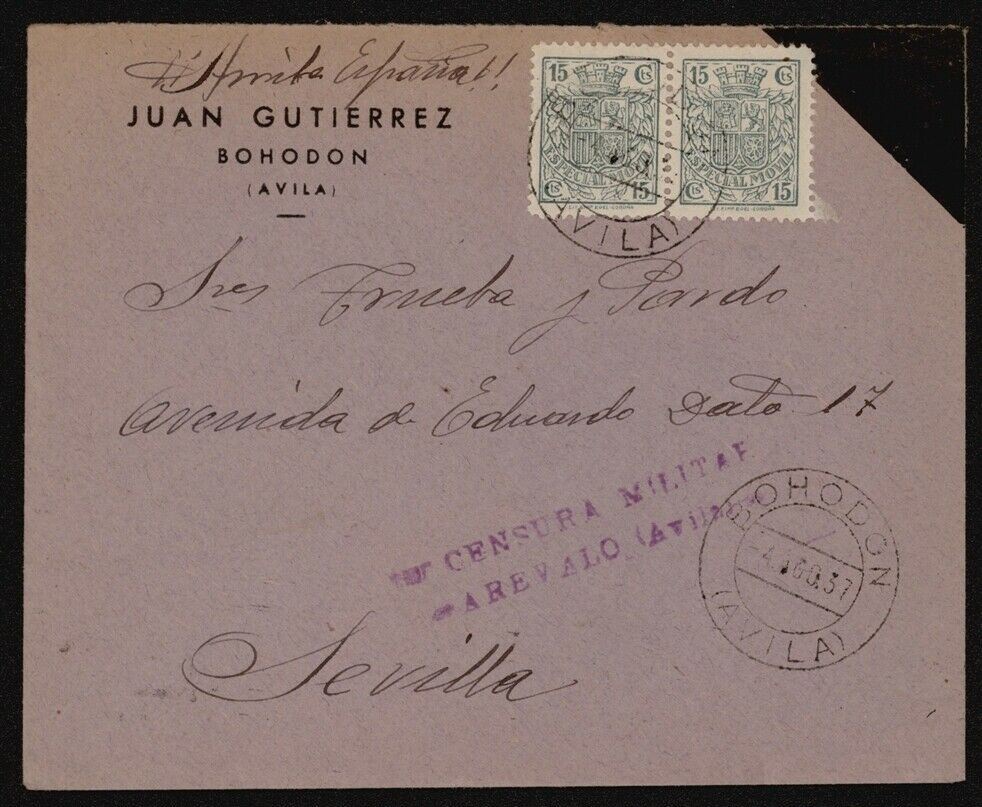 ¡¡Arriba España!!
JUAN GUTIERREZ
BOHODON
(AVILA)
15 Cts 15 Cts
ESPECIAL MOVIL ESPECIAL MOVIL
Cts 15 Cts 15
(AVILA)
Sres Trueba y Pardo
Avenida de Eduardo Dato 17
CENSURA MILITAR
AREVALO (Avila)
BOHODON
-4.AGO.37
(AVILA)
Sevilla